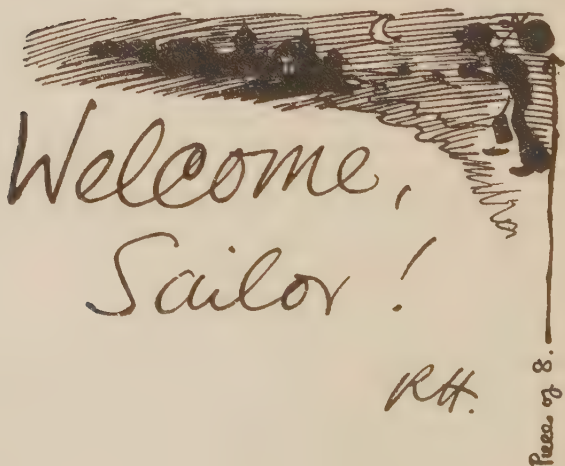 Welcome,
Sailor!
RH.
Pieces of 8.